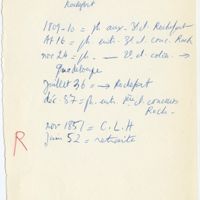 Rochefort
1809-10 = ph. aux. 3e cl. Rochefort
At 16 = ph. entr. 3e cl. conc. Roch
nov 24 = ph. — 2e cl. colon. →
Guadeloupe
Juillet 36 = → Rochefort
déc. 37 = ph. entr. cl. concours
Roch.
nov 1851 = C. L. H
Juin 52 = retraite
R